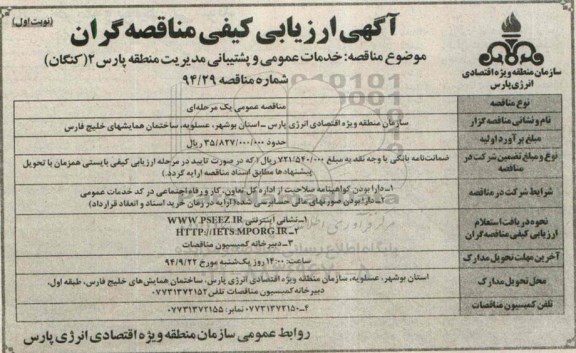 (نوبت اول)
آگهی ارزیابی کیفی مناقصه گران
موضوع مناقصه: خدمات عمومی و پشتیبانی مدیریت منطقه پارس ۲ (کنگان)
شماره مناقصه ۹۴/۲۹
سازمان منطقه ویژه اقتصادی
انرژی پارس
نوع مناقصه
مناقصه عمومی یک مرحله‌ای
نام و نشانی مناقصه گزار
سازمان منطقه ویژه اقتصادی انرژی پارس - استان بوشهر، عسلویه، ساختمان همایشهای خلیج فارس
مبلغ برآورد اولیه
۳۵/۸۲۷/۰۰۰/۰۰۰ ریال
نوع و مبلغ تضمین شرکت در مناقصه
ضمانت‌نامه بانکی یا وجه نقد به مبلغ ۷۲۱/۵۴۰/۰۰۰ ریال (که در صورت تایید در مرحله ارزیابی کیفی بایستی همزمان با تحویل
پیشنهادها مطابق اسناد مناقصه ارایه گردد.)
شرایط شرکت در مناقصه
۱- دارا بودن گواهینامه صلاحیت از اداره کل تعاون، کار و رفاه اجتماعی در کد خدمات عمومی
۲- دارا بودن صورتهای مالی حسابرسی شده (ارایه در زمان خرید اسناد و انعقاد قرارداد)
نحوه دریافت استعلام
ارزیابی کیفی مناقصه گران
۱- نشانی اینترنتی WWW.PSEEZ.IR
۲- HTTP://IETS.MPORG.IR
۳- دبیرخانه کمیسیون مناقصات
آخرین مهلت تحویل مدارک
ساعت: ۱۴:۰۰ روز یک‌شنبه مورخ ۹۴/۹/۲۲
محل تحویل مدارک
استان بوشهر، عسلویه، سازمان منطقه ویژه اقتصادی انرژی پارس، ساختمان همایش‌های خلیج فارس، طبقه اول،
دبیرخانه کمیسیون مناقصات تلفن ۰۷۷۳۱۳۷۲۱۵۲
تلفن کمیسیون مناقصات
۴-۰۷۷۳۱۳۷۲۱۵۰ نمابر: ۰۷۷۳۱۳۷۲۱۵۵
روابط عمومی سازمان منطقه ویژه اقتصادی انرژی پارس